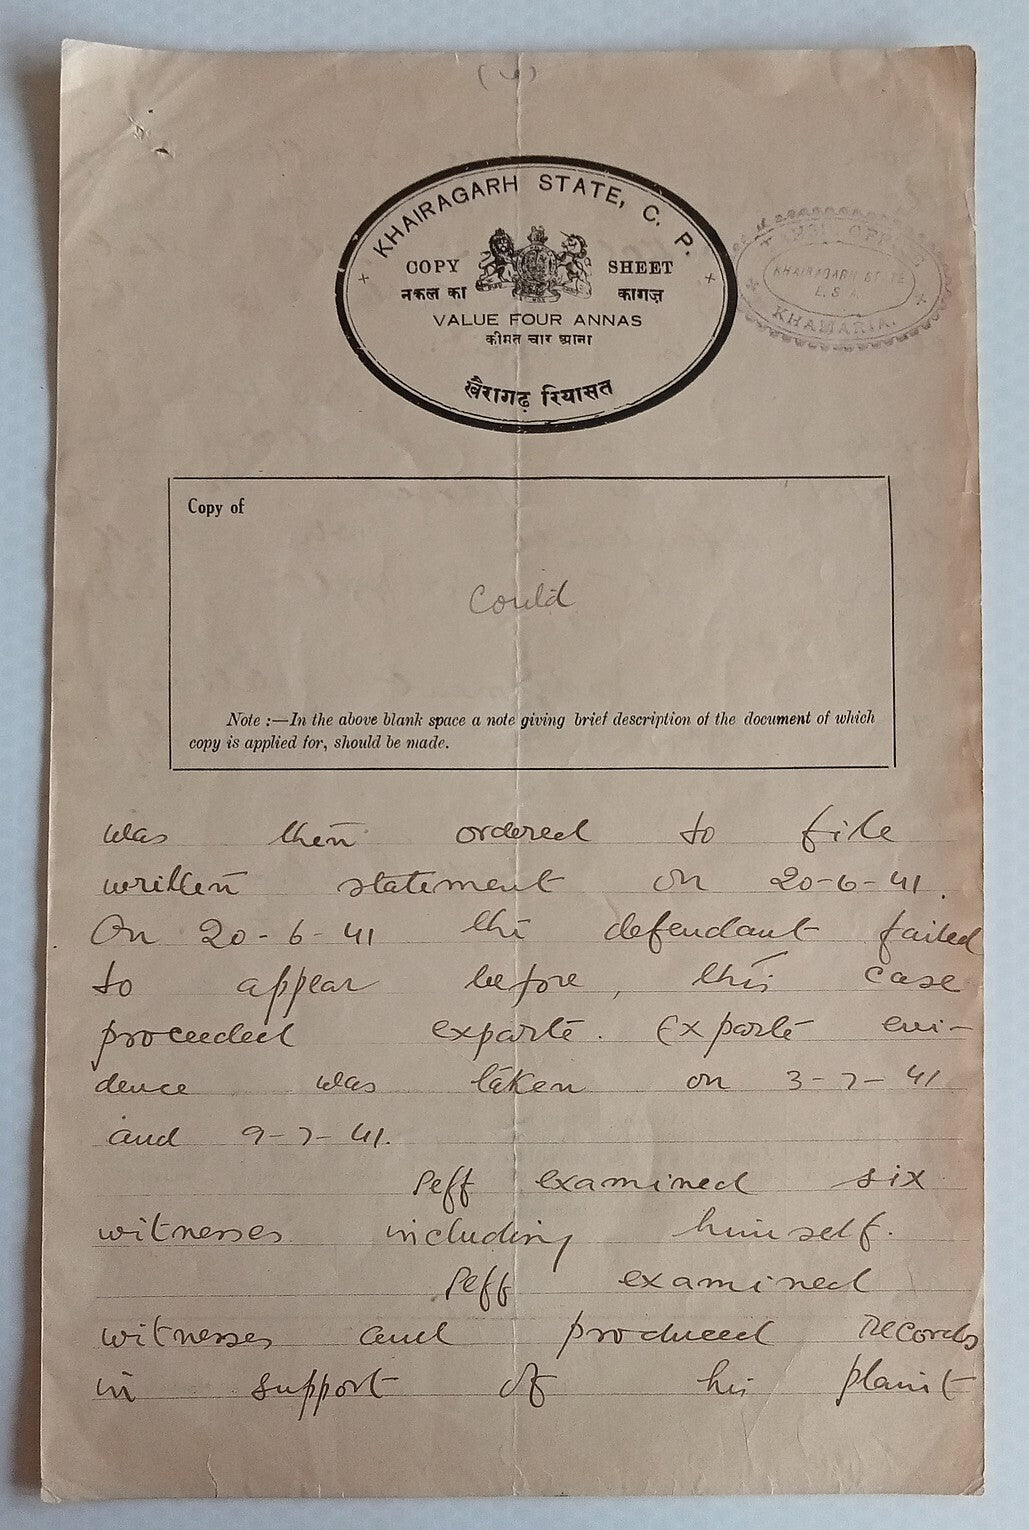 KHAIRAGARH STATE, C. P.
COPY SHEET
नकल का कागज़
VALUE FOUR ANNAS
कीमत चार आना
खैरागढ़ रियासत
KHAIRAGARH STATE
KHAMARIA.
Copy of
Could
Note :—In the above blank space a note giving brief description of the document of which
copy is applied for, should be made.
was then ordered to file
written statement on 20-6-41.
On 20-6-41 the defendant failed
to appear before, this case
proceeded exparte. Exparte evi-
dence was taken on 3-7-41
and 9-7-41.
Peff examined six
witnesses including himself.
Peff examined
witnesses and produced records
in support of his plaint